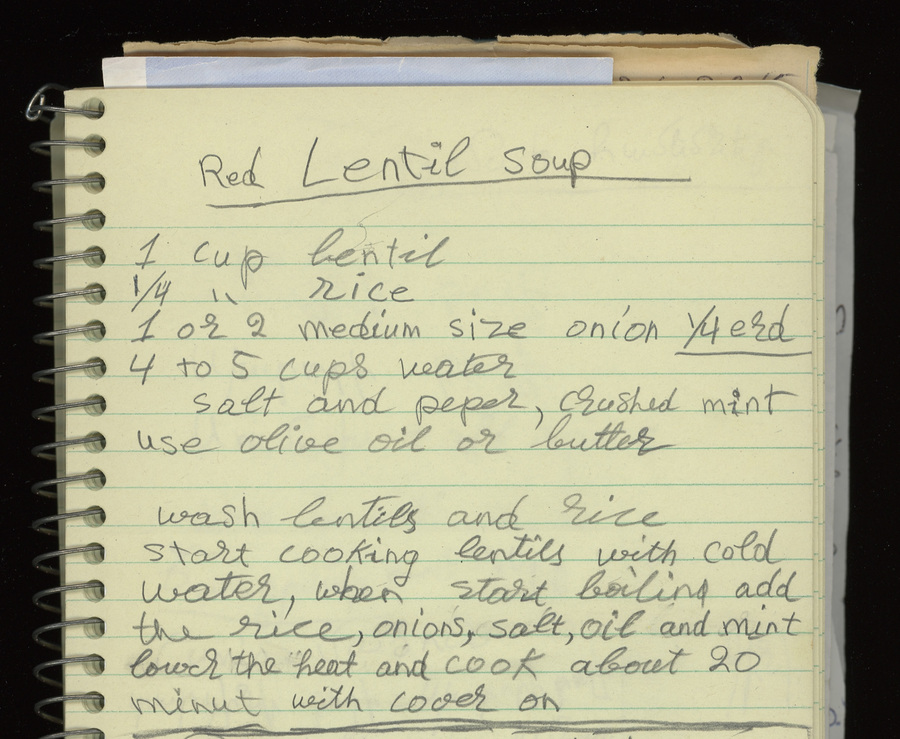 Red Lentil Soup
1 cup lentil
1/4 " rice
1 or 2 medium size onion 1/4 erd
4 to 5 cups water
salt and peper, crushed mint
use olive oil or butter
wash lentils and rice
start cooking lentils with cold
water, when start boiling add
the rice, onions, salt, oil and mint
lower the heat and cook about 20
minut with cover on